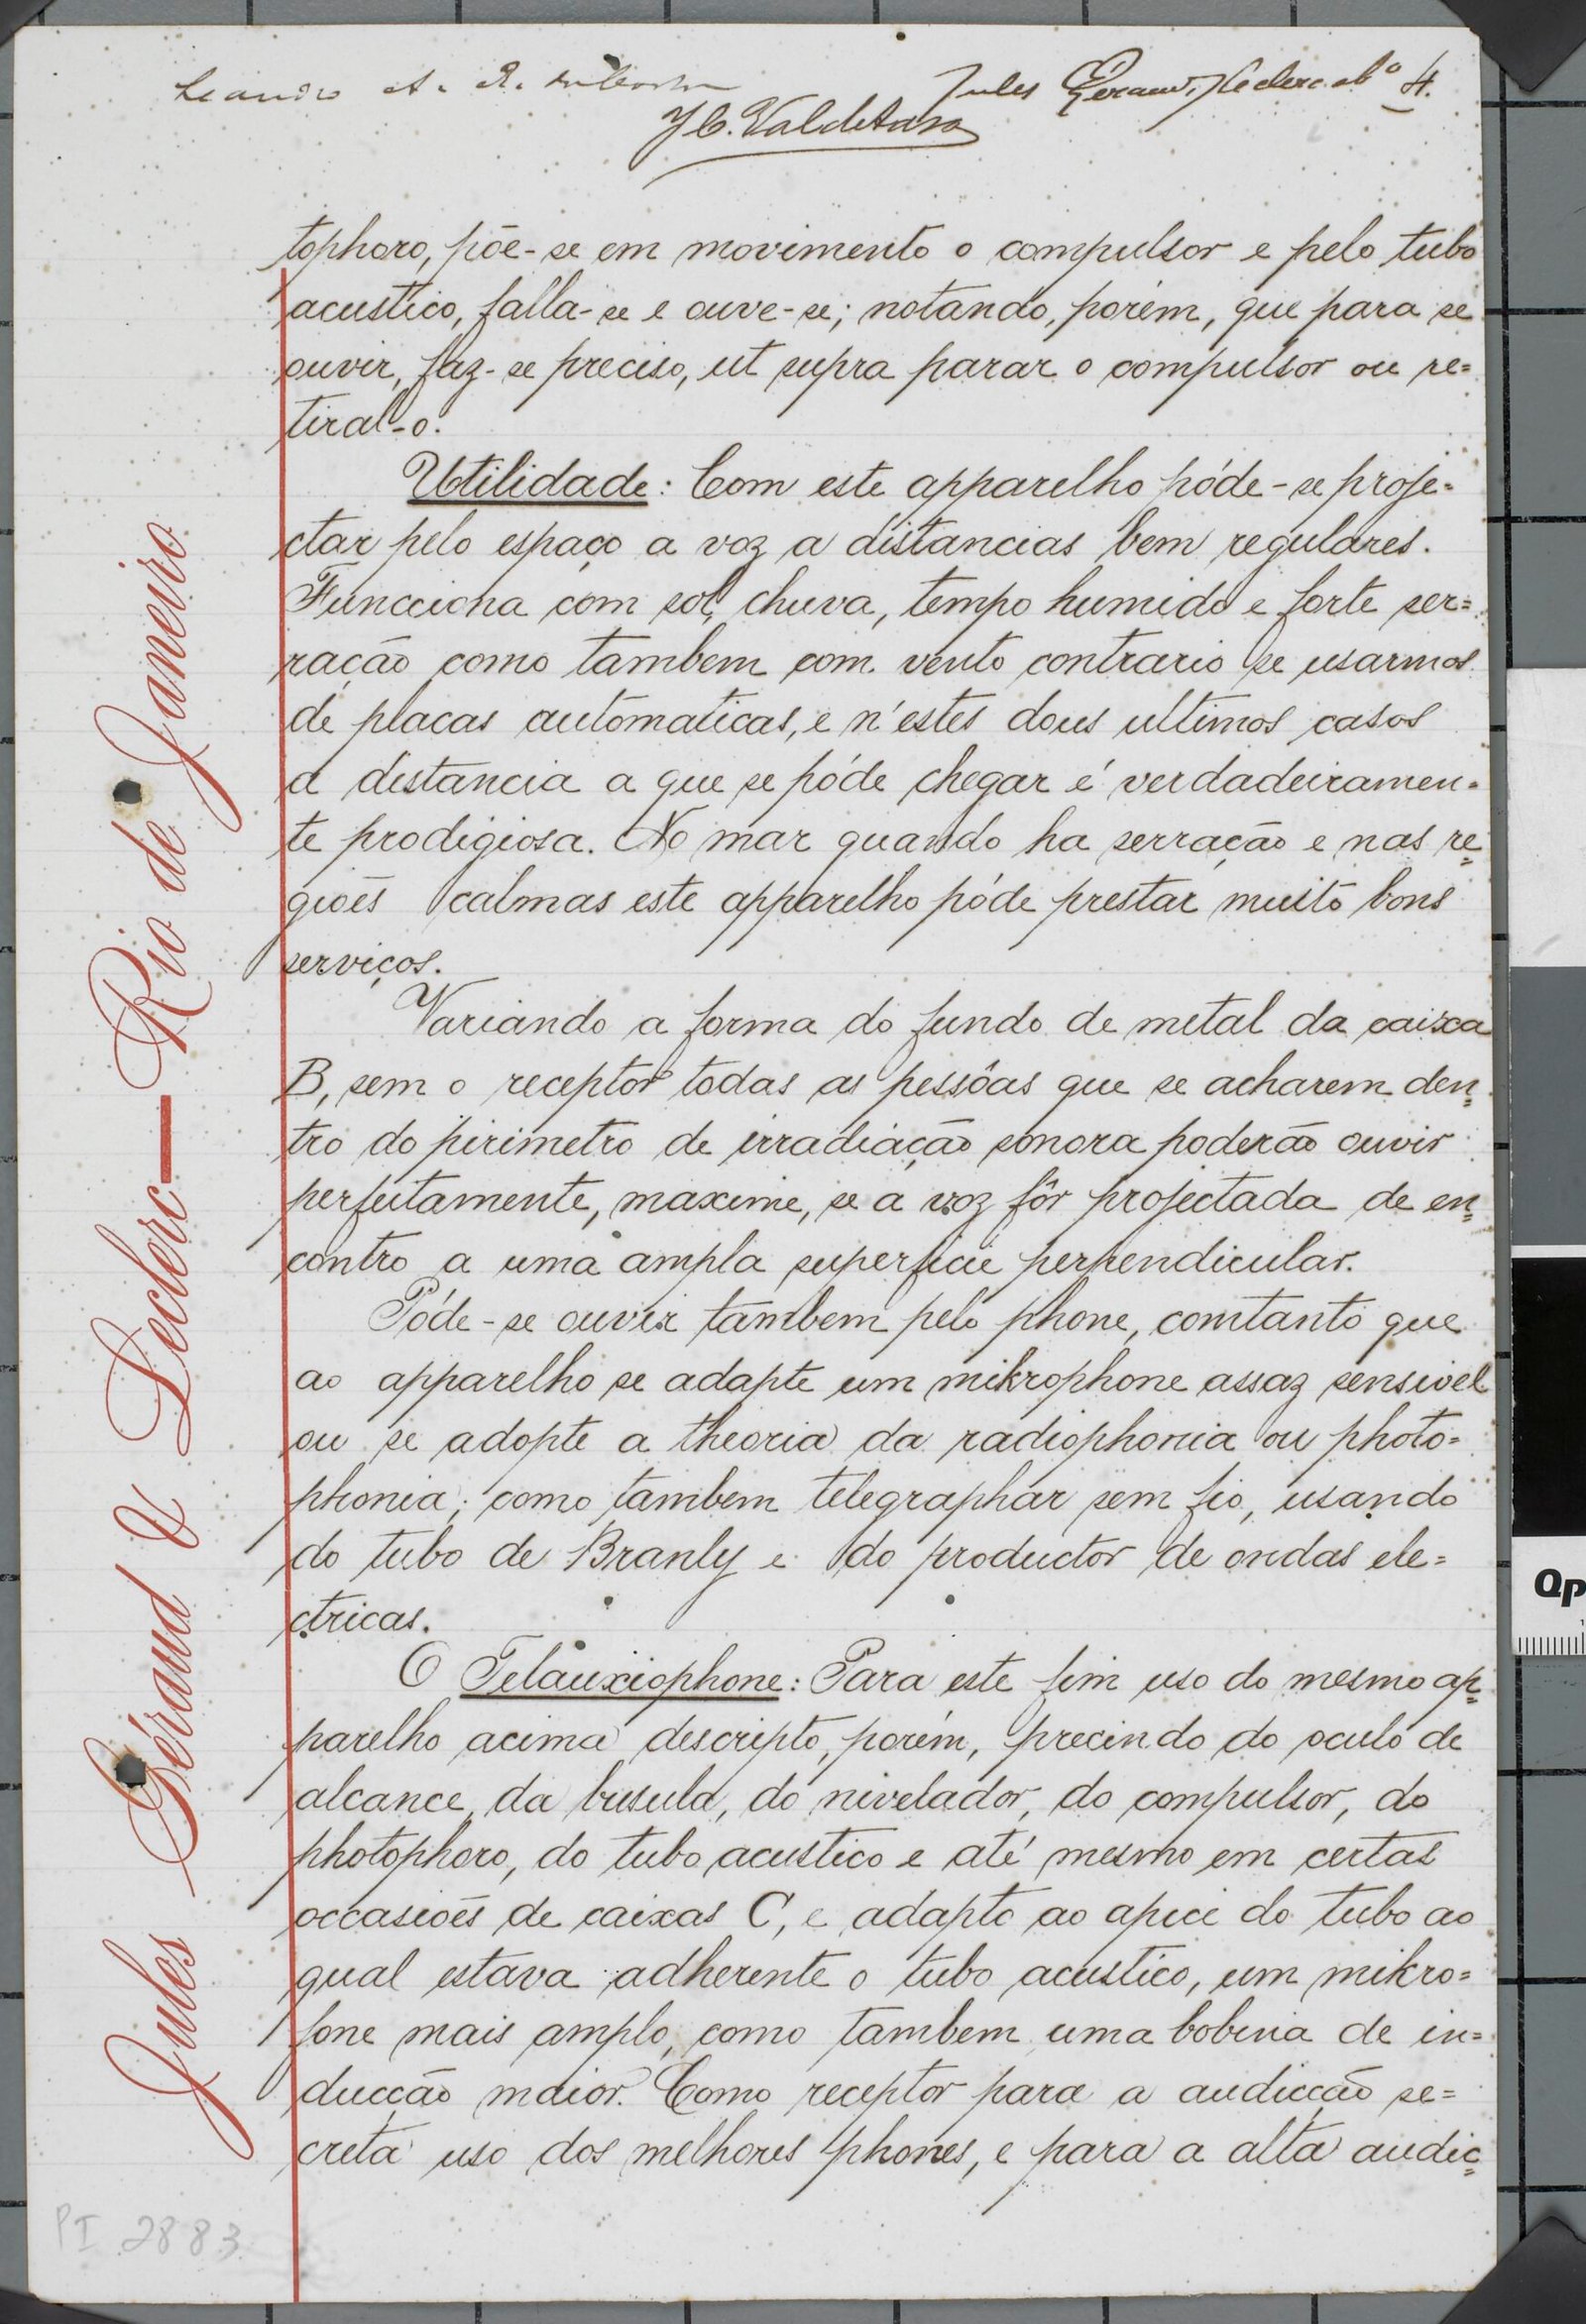 Leandro A. R. da
Jules Géraud, Leclerc & Cº 4.
J C. Valdetaro
tophoro, põe-se em movimento o compulsor e pelo tubo
acustico, falla-se e ouve-se; notando, porém, que para se
ouvir, faz-se preciso, ut supra parar o compulsor ou re=
tiral-o.
Utilidade: Com este apparelho póde-se proje=
ctar pelo espaço a voz a distancias bem regulares.
Funcciona com sol, chuva, tempo humido e forte ser=
ração como tambem com vento contrario se usarmos
de placas automaticas, e n'estes dous ultimos casos
a distancia a que se póde chegar é verdadeiramen=
te prodigiosa. No mar quando ha serração e nas re=
giões calmas este apparelho póde prestar muito bons
serviços.
Variando a forma do fundo de metal da caixa
B, sem o receptor todas as pessôas que se acharem den=
tro do pirimetro de irradiação sonora poderão ouvir
perfeitamente, maxime, se a voz fôr projectada de en=
contro a uma ampla superficie perpendicular.
Póde-se ouvir tambem pelo phone, comtanto que
ao apparelho se adapte um mikrophone assaz sensivel
ou se adopte a theoria da radiophonia ou photo=
phonia; como tambem telegraphar sem fio, usando
do tubo de Branly e do productor de ondas ele=
ctricas.
O Telauxiophone: Para este fim uso do mesmo ap=
parelho acima descripto, porém, precindo do oculo de
alcance, da busula, do nivelador, do compulsor, do
photophoro, do tubo acustico e até mesmo em certas
occasiões de caixas C, e adapto ao apice do tubo ao
qual estava adherente o tubo acustico, um mikro=
fone mais amplo, como tambem uma bobina de in=
ducção maior. Como receptor para a audicção se=
creta uso dos melhores phones, e para a alta audic=
Jules Géraud & Leclerc — Rio de Janeiro
PI 2883